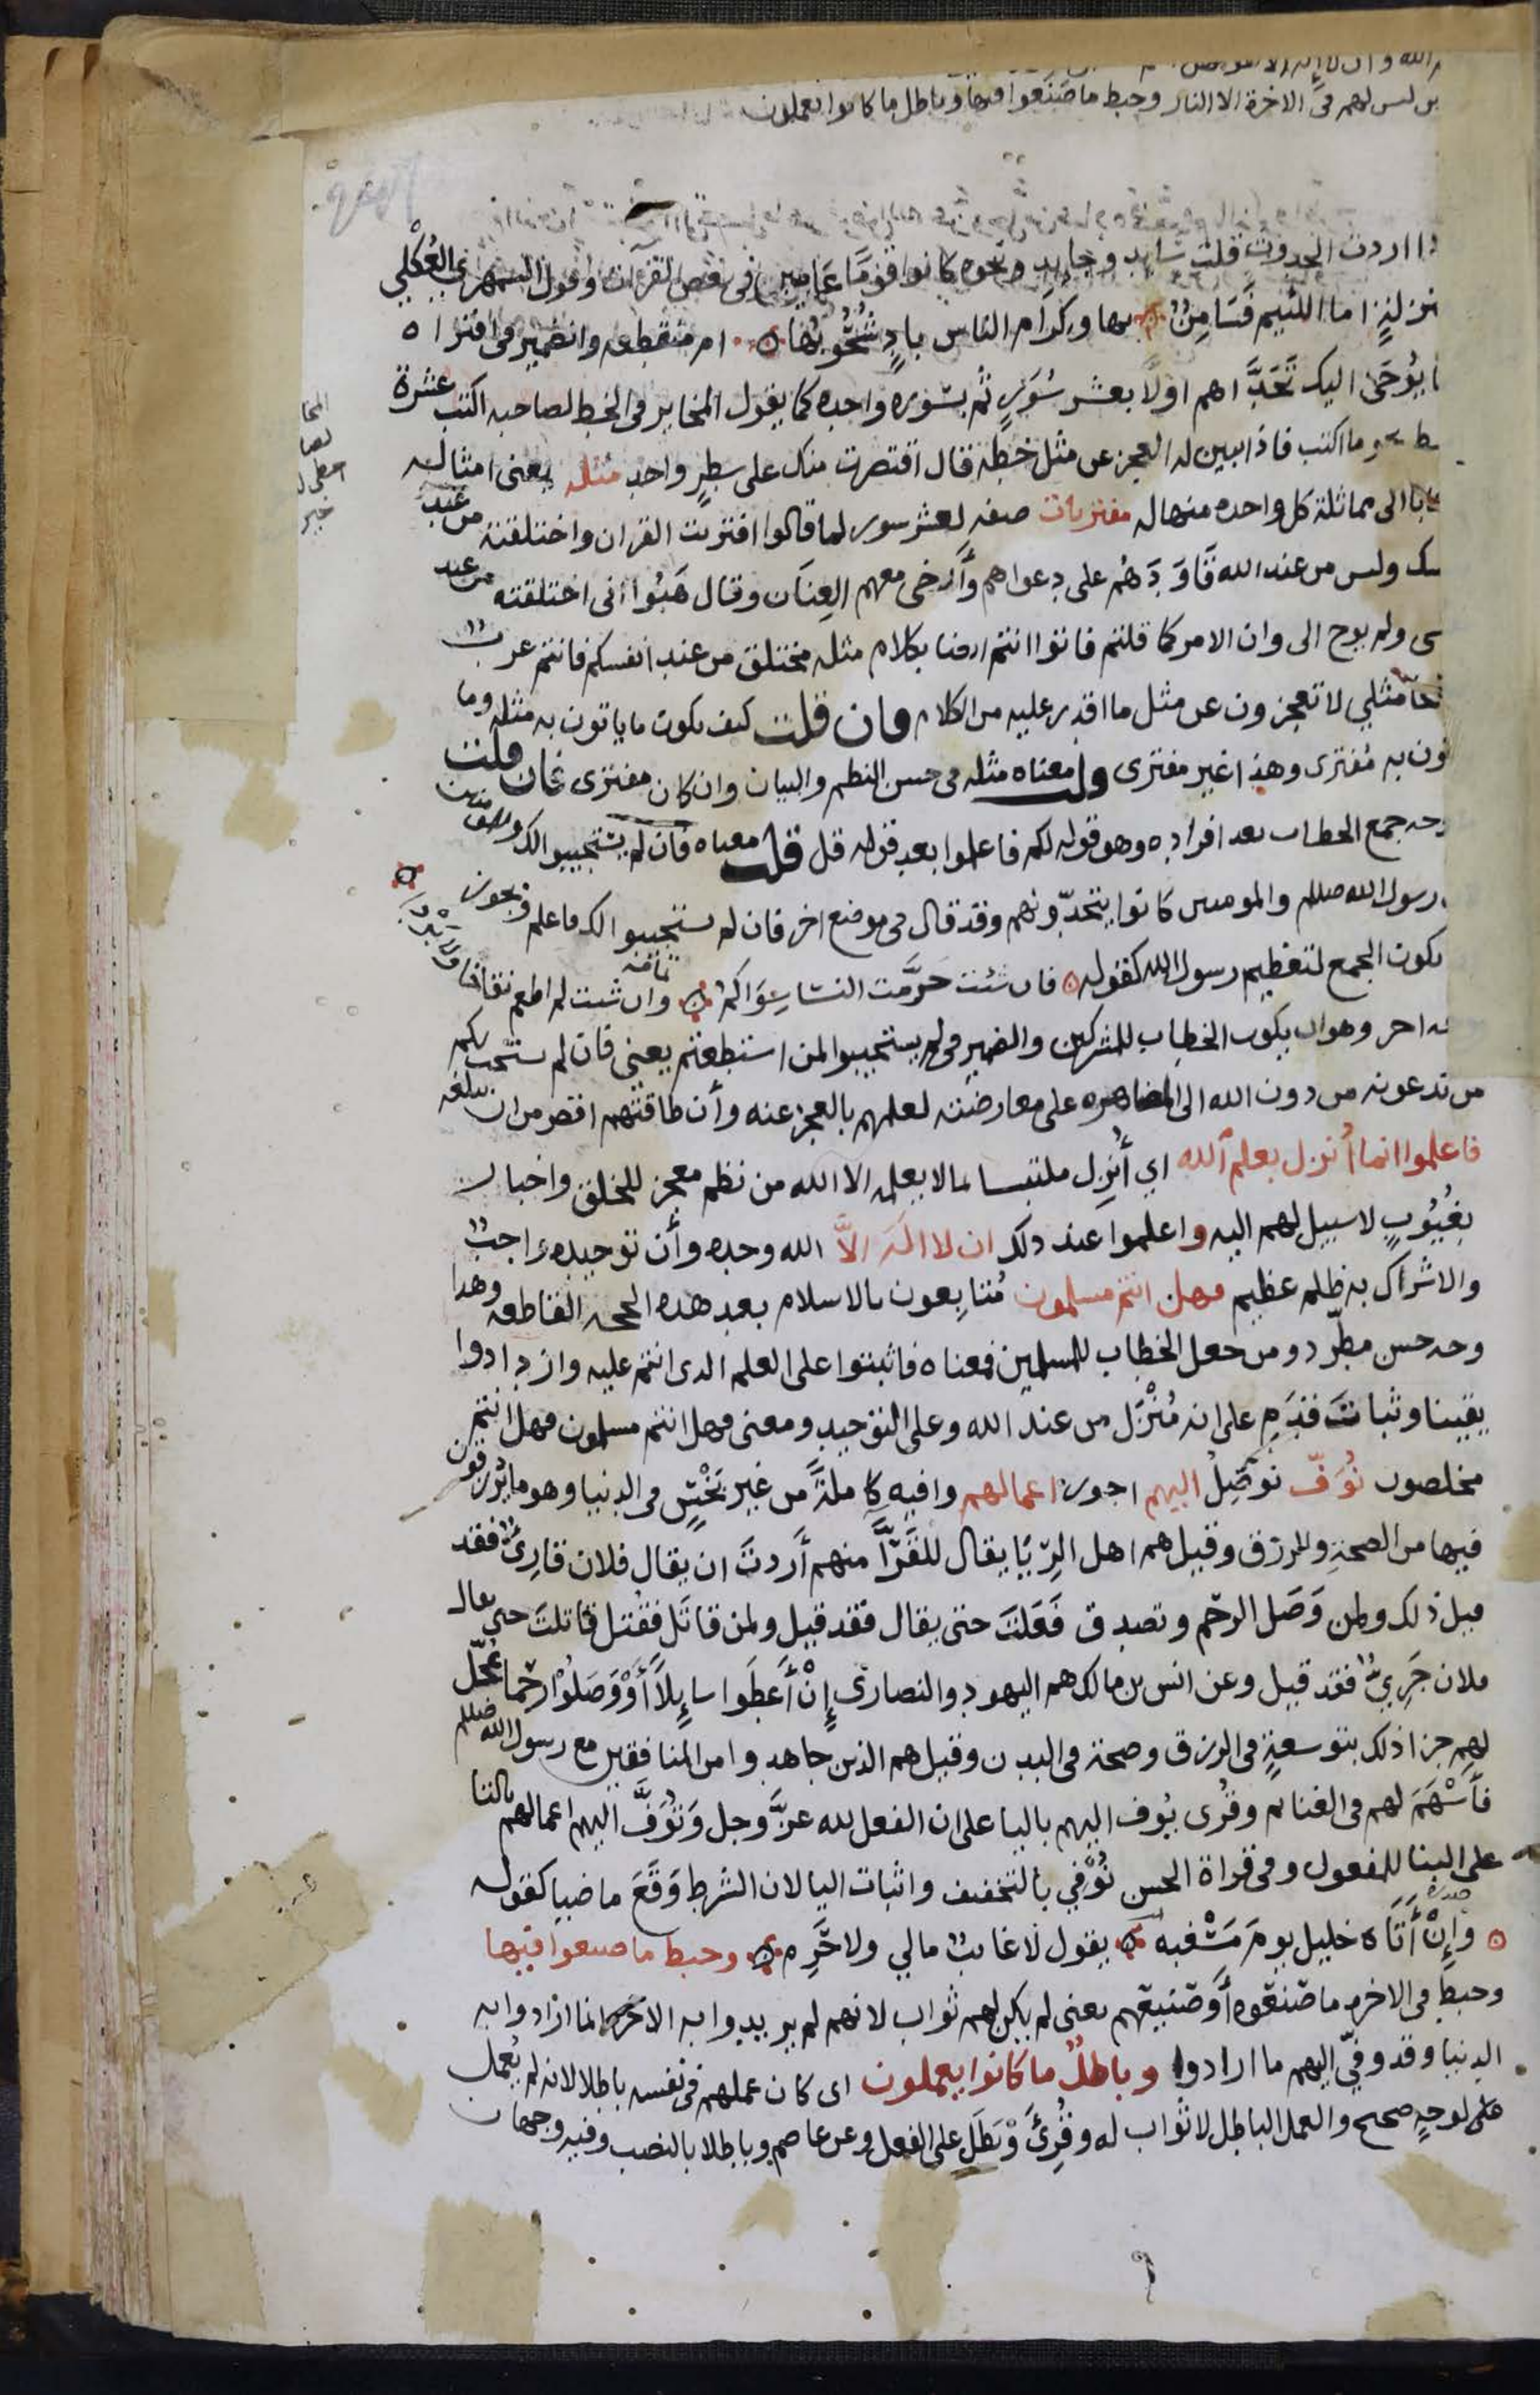 الله وان لا اله الا هو
ليس لهم في الاخرة الا النار وحبط ما صنعوا فيها وباطل ما كانوا يعملون
اردت الحدوث قلت سايد وجايد ونحوه كانوا قوما عامين في بعض القرآت وقول السمهري العكلي
بمنزلةٍ اما اللئيم فَسَامِنٌ بها وكرام الناس بادٍ شُحُوبُها ام منقطعه والضمير في افتراه
يُوحَى اليك تَحَدَّاهم اولًا بعشر سُوَرٍ ثم بسوره واحده كما يقول المخاير في الخط لصاحبه اكتب عشرة
نحو ما اكتب فاذا تبين له العجز عن مثل خطه قال اقتصرت منك على سطرٍ واحد مثله يعني امثاله
الى مماثلة كل واحده منها له مفتريات صفه لعشر سور لما قالوا افتريت القران واختلقته من عند
وليس من عند الله قَاوَدَهُم على دعواهم وأَرْخى معهم العِنَان وقال هَبُوا اني اختلقته من عند
ولم يوح الي وان الامر كما قلتم فاتوا انتم ايضا بكلام مثله مختلق من عند انفسكم فانتم عرب
مثلي لا تعجزون عن مثل ما اقدر عليه من الكلام فان قلت كيف يكون ما ياتون به مثله وما
به مُفترى وهذا غير مفترى قلت معناه مثله في حسن النظم والبيان وان كان مفترى فان قلت
جمع الخطاب بعد افراده وهو قوله لكم فاعلموا بعد قوله قل قلت معناه فان لم يستجيبوا لك وللمومنين
رسول الله صللم والمومنين كانوا يتحدّونهم وقد قال في موضع اخر فان لم يستجيبوا لك فاعلم ويجوز
يكون الجمع لتعظيم رسول الله كقوله فان شئت حَرَّمت النسا سِوَاكُم وان شئت لم اطعم نقاخا ولا بردا
اخر وهو ان يكون الخطاب للمشركين والضمير في لم يستجيبوا لمن استطعتم يعني فان لم يستجب لكم
من تدعونه من دون الله الى المظاهره على معارضته لعلمهم بالعجز عنه وأن طاقتهم اقصر من ان تبلغه
فاعلموا انما أُنزل بعلم الله اي أُنزِل ملتبسا بما لا يعلمه الا الله من نظم معجز للخلق واخبار
بغُيُوبٍ لا سبيل لهم اليه واعلموا عند ذلك ان لا اله الَّا الله وحده وأن توحيده واجبٌ
والاشراك به ظلم عظيم فهل انتم مسلمون مُتَابِعون بالاسلام بعد هذه الحجه القاطعه وهذا
وجه حسن مطّرد ومن جعل الخطاب للمسلمين فمعناه فاثبتوا على العلم الذي انتم عليه وازدادوا
يقينا وثبات قَدَمٍ على انه مُنْزَل من عند الله وعلى التوحيد ومعنى فهل انتم مسلمون فهل انتم
مخلصون نُوَفّ نوصِلُ اليهم اجور اعمالهم وافيه كاملةً من غير بَخْسٍ في الدنيا وهو ما يُرزقون
فيها من الصحةِ والرزق وقيل هم اهل الرِّيَا يقال للقُرَّا منهم أَردتَ ان يقال فلان قارئٌ فقد
قيل ذلك ولمن وَصَل الرحم وتصدق فَعَلتَ حتى يقال فقد قيل ولمن قاتَل فقُتل قاتلتَ حتى يقال
فلان جَرِيءٌ فقد قيل وعن انس بن مالك هم اليهود والنصارى إِنْ أَعطَوا سايِلًا أَوْوَصَلُوْا رحما عُجّل
لهم جزا ذلك بتوسعةٍ في الرزق وصحة في البدن وقيل هم الذين جاهدوا من المنافقين مع رسول الله صللم
فأَسْهَمَ لهم في الغنايم وقُرى يُوف اليهم باليا على ان الفعل لله عزَّ وجل وَتُوَفَّ اليهم اعمالهم بالتا
على البنا للمفعول وفي قراة الحسن نُوْفي بالتخفيف واثبات اليا لان الشرط وَقَعَ ماضيا كقوله
وإِنْ أَتَاه خليل يومَ مَسْغبه يقول لا غايبٌ مالي ولا حَرِم وحبط ما صنعوا فيها
وحبط في الاخره ما صَنعوه أَوصَنيعهم يعني لم يكن لهم ثواب لانهم لم يريدوا به الاخره انما ارادوا به
الدنيا وقد وفّي اليهم ما ارادوا وباطلٌ ما كانوا يعملون اي كان عملهم في نفسه باطلا لانه لم يُعمل
على لوجهٍ صحيح والعمل الباطل لا ثواب له وقُرِئَ وَبَطَلَ على الفعل وعن عاصم وباطلا بالنصب وفيه وجهان